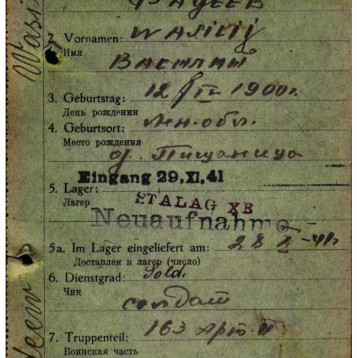 ФАДЕЕВ
2. Vornamen: Wasilij
Имя
Василий
3. Geburtstag: 12/IV 1900г.
День рождения
4. Geburtsort: Лен. обл.
Место рождения
д. Пищаница
Eingang 29. XI. 41
5. Lager: STALAG XB
Лагер
Neuaufnahme
5a. Im Lager eingeliefert am: 28 X - 41г
Доставлен в лагер (число)
6. Dienstgrad: Sold.
Чин
солдат
7. Truppenteil: 163 арт. п
Воинская часть